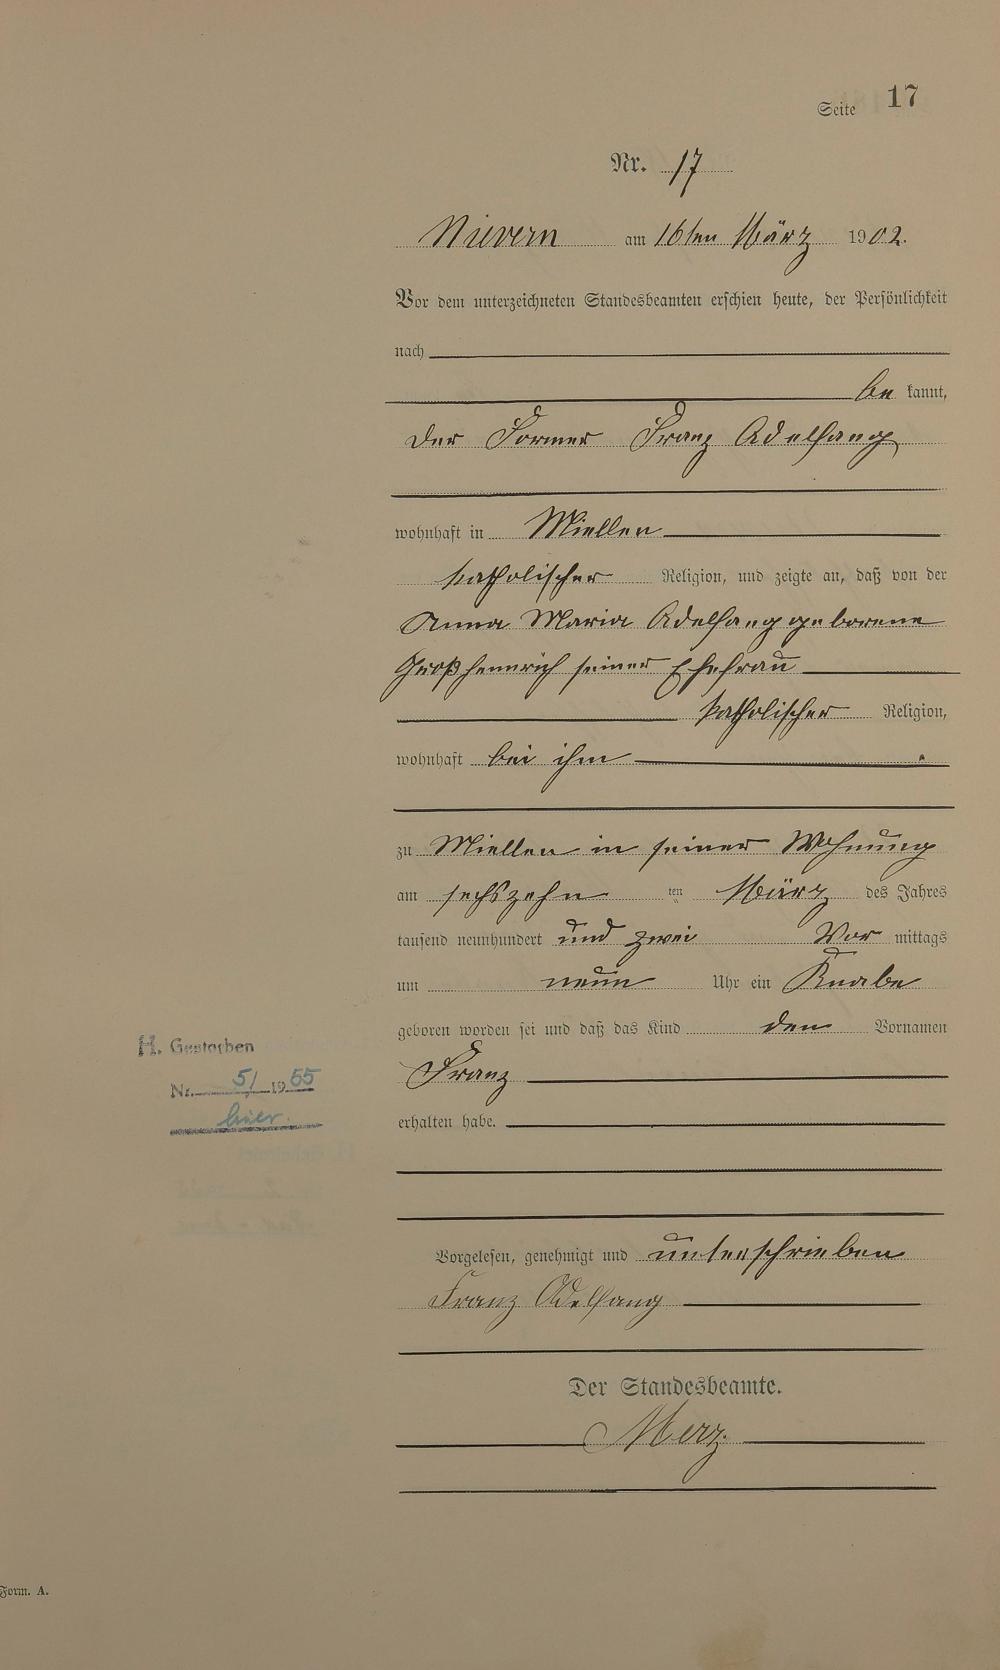 Seite 17
Nr. 17
Nievern am 16ten März 1902.
Vor dem unterzeichneten Standesbeamten erschien heute, der Persönlichkeit
nach
be kannt,
der Former Franz Adelfang
wohnhaft in Miellen
katholischer Religion, und zeigte an, daß von der
Anna Maria Adelfang geborene
Großheinrich seiner Ehefrau
katholischer Religion,
wohnhaft bei ihm
zu Miellen in seiner Wohnung
am sechszehn ten März des Jahres
tausend neunhundert und zwei Vor mittags
um neun Uhr ein Knabe
geboren worden sei und daß das Kind den Vornamen
Franz
H. Gestorben
Nr. 5/1955
hier.
erhalten habe.
Vorgelesen, genehmigt und unterschrieben
Franz Adelfang
Der Standesbeamte.
Merz.
Form. A.